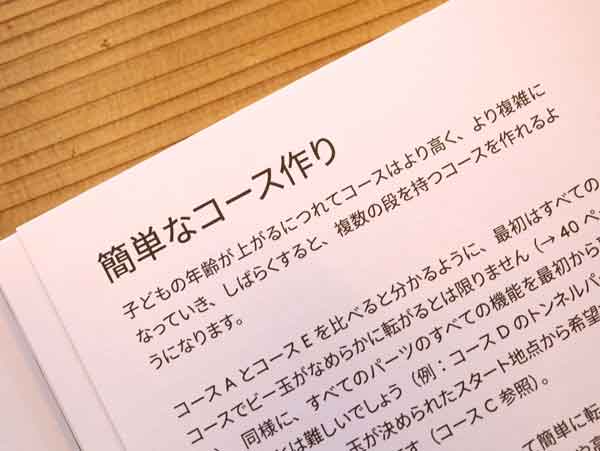 簡単なコース作り
子どもの年齢が上がるにつれてコースはより高く、より複雑に
なっていき、しばらくすると、複数の段を持つコースを作れるよ
うになります。
コース A とコース E を比べると分かるように、最初はすべての
コースでビー玉がなめらかに転がるとは限りません（→ 40 ペ
同様に、すべてのパーツのすべての機能を最初から
は難しいでしょう（例：コース D のトンネルパ
玉が決められたスタート地点から希望
す（コース C 参照）。
て簡単に転